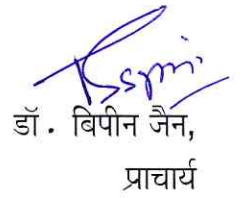 डॉ. बिपीन जैन,
प्राचार्य